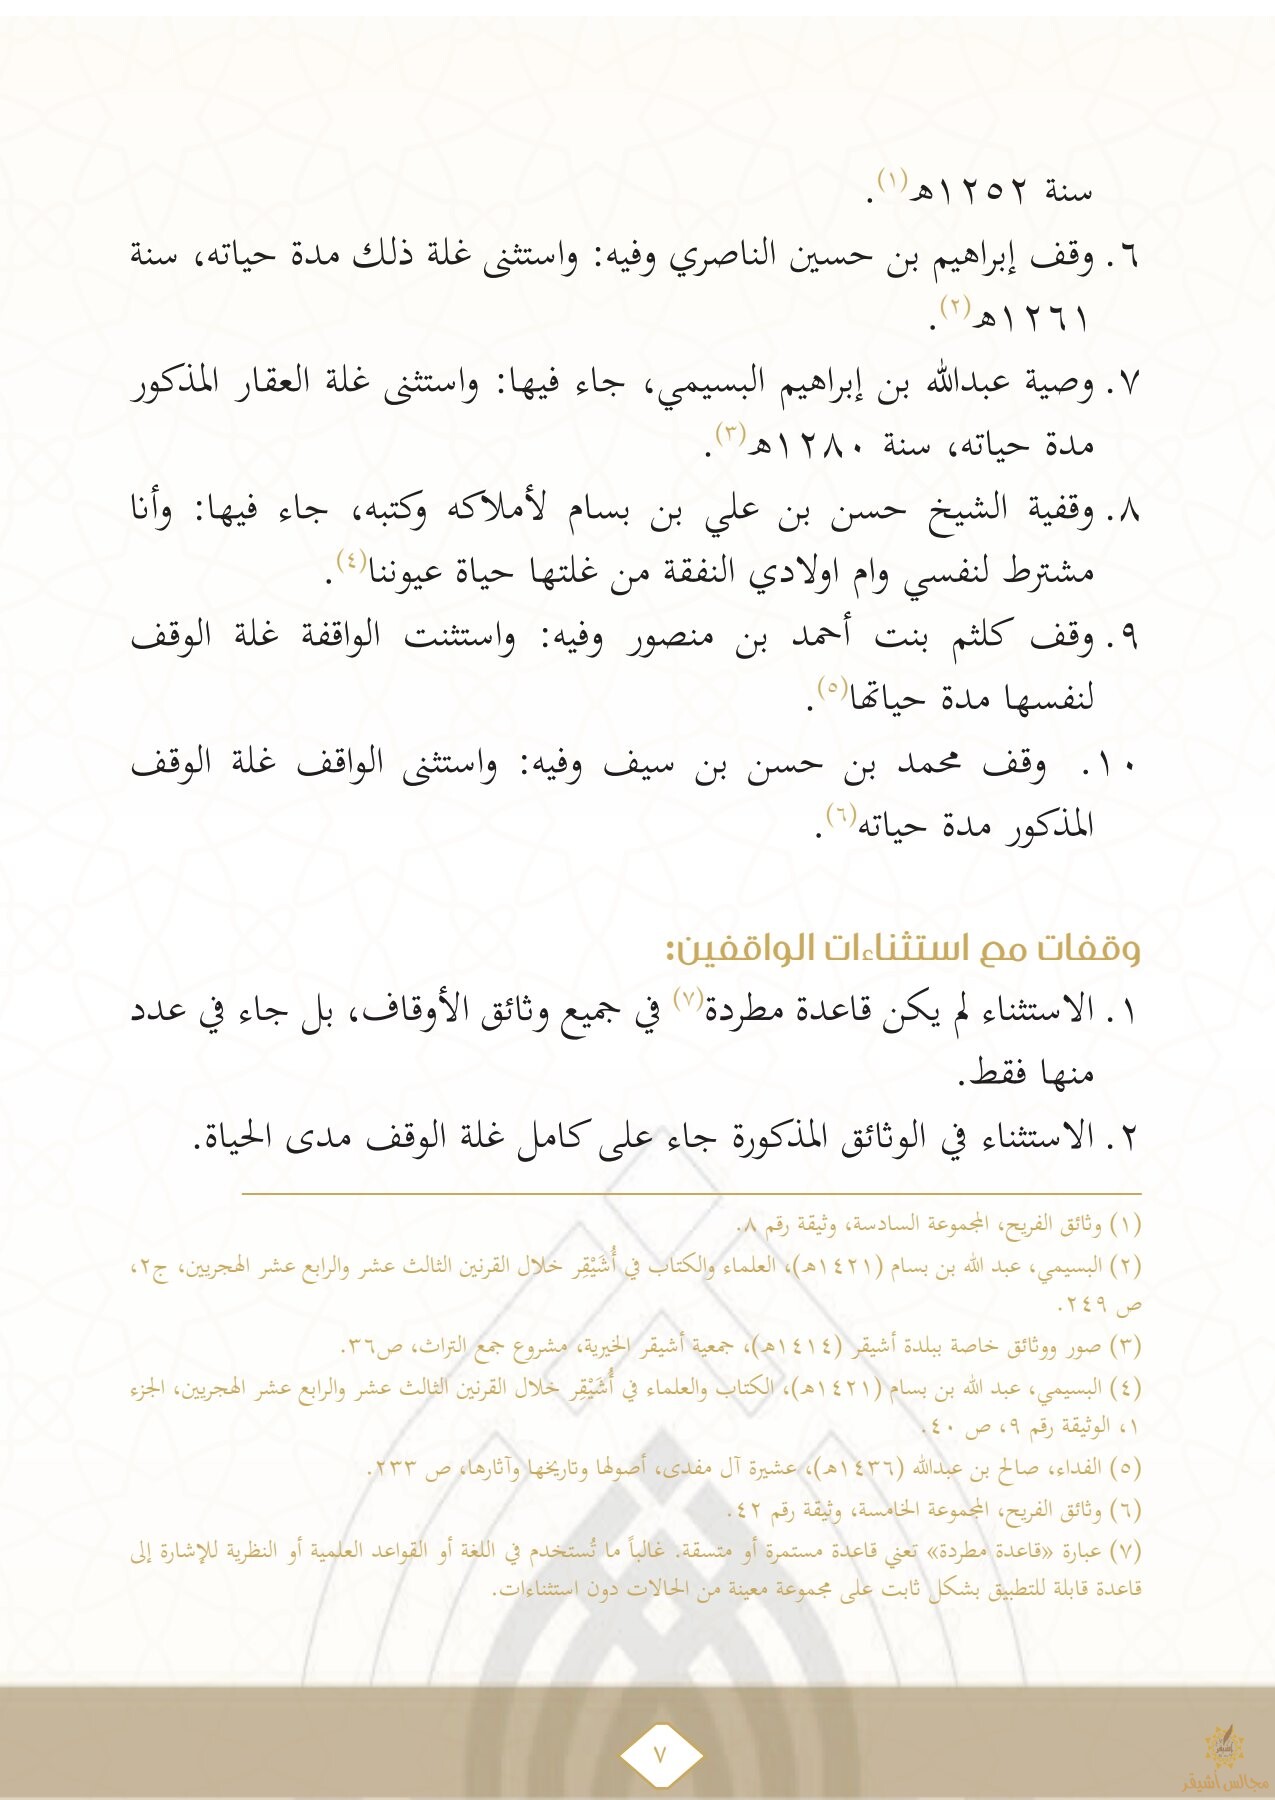 سنة ١٢٥٢هـ(١).
٦. وقف إبراهيم بن حسين الناصري وفيه: واستثنى غلة ذلك مدة حياته، سنة
١٢٦١هـ(٢).
٧. وصية عبدالله بن إبراهيم البسيمي، جاء فيها: واستثنى غلة العقار المذكور
مدة حياته، سنة ١٢٨٠هـ(٣).
٨. وقفية الشيخ حسن بن علي بن بسام لأملاكه وكتبه، جاء فيها: وأنا
مشترط لنفسي وام اولادي النفقة من غلتها حياة عيوننا(٤).
٩. وقف كلثم بنت أحمد بن منصور وفيه: واستثنت الواقفة غلة الوقف
لنفسها مدة حياتها(٥).
١٠. وقف محمد بن حسن بن سيف وفيه: واستثنى الواقف غلة الوقف
المذكور مدة حياته(٦).
وقفات مع استثناءات الواقفين:
١. الاستثناء لم يكن قاعدة مطردة(٧) في جميع وثائق الأوقاف، بل جاء في عدد
منها فقط.
٢. الاستثناء في الوثائق المذكورة جاء على كامل غلة الوقف مدى الحياة.
(١) وثائق الفريح، المجموعة السادسة، وثيقة رقم ٨.
(٢) البسيمي، عبد الله بن بسام (١٤٢١هـ)، العلماء والكتاب في أُشَيْقِر خلال القرنين الثالث عشر والرابع عشر الهجريين، ج٢،
ص ٢٤٩.
(٣) صور ووثائق خاصة ببلدة أشيقر (١٤١٤هـ)، جمعية أشيقر الخيرية، مشروع جمع التراث، ص٣٦.
(٤) البسيمي، عبد الله بن بسام (١٤٢١هـ)، الكتاب والعلماء في أُشَيْقِر خلال القرنين الثالث عشر والرابع عشر الهجريين، الجزء
١، الوثيقة رقم ٩، ص ٤٠.
(٥) الفداء، صالح بن عبدالله (١٤٣٦هـ)، عشيرة آل مفدى، أصولها وتاريخها وآثارها، ص ٢٣٣.
(٦) وثائق الفريح، المجموعة الخامسة، وثيقة رقم ٤٢.
(٧) عبارة «قاعدة مطردة» تعني قاعدة مستمرة أو متسقة. غالباً ما تُستخدم في اللغة أو القواعد العلمية أو النظرية للإشارة إلى
قاعدة قابلة للتطبيق بشكل ثابت على مجموعة معينة من الحالات دون استثناءات.
٧
مجالس أشيقر